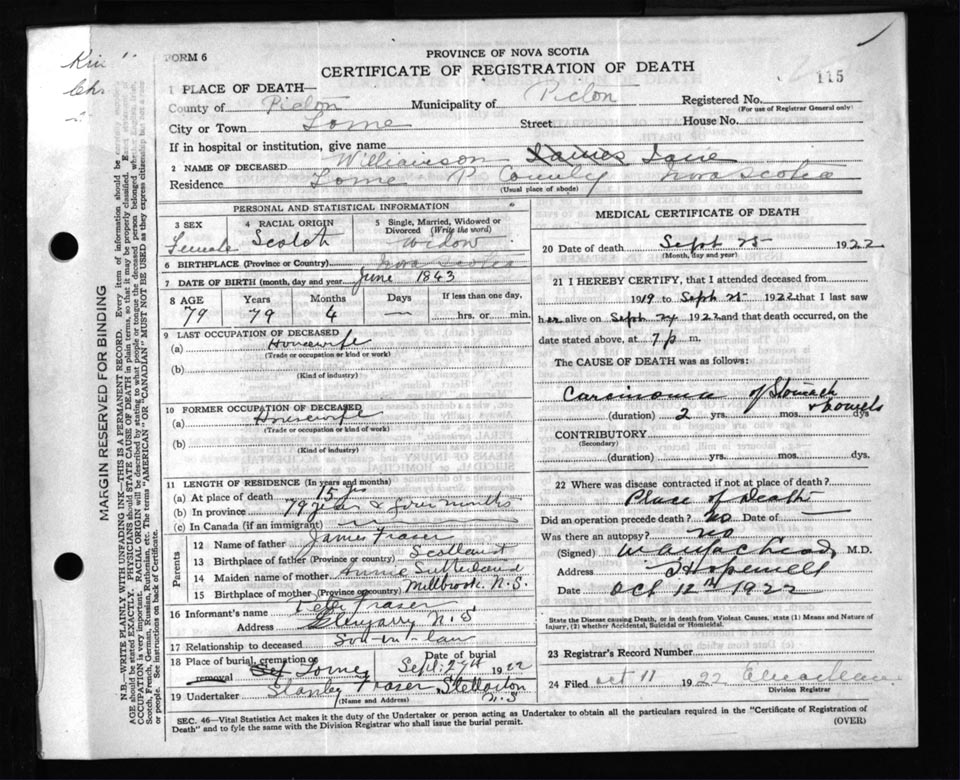 Kin
Chr
FORM 6
PROVINCE OF NOVA SCOTIA
CERTIFICATE OF REGISTRATION OF DEATH
115
1 PLACE OF DEATH—
County of Pictou Municipality of Pictou Registered No.
(For use of Registrar General only)
City or Town Lorne Street House No.
If in hospital or institution, give name
2 NAME OF DECEASED Williamson James Jane
Residence Lorne P. County Nova Scotia
(Usual place of abode)
PERSONAL AND STATISTICAL INFORMATION
3 SEX Female
4 RACIAL ORIGIN Scotch
5 Single, Married, Widowed or Divorced (Write the word) Widow
6 BIRTHPLACE (Province or Country) Nova Scotia
7 DATE OF BIRTH (month, day and year) June 1843
8 AGE Years Months Days If less than one day,
79 79 4 — hrs. or min.
9 LAST OCCUPATION OF DECEASED
(a) Housewife
(Trade or occupation or kind of work)
(b)
(Kind of industry)
10 FORMER OCCUPATION OF DECEASED
(a) Housewife
(Trade or occupation or kind of work)
(b)
(Kind of industry)
11 LENGTH OF RESIDENCE (In years and months)
(a) At place of death 15 yrs
(b) In province 79 years & four months
(c) In Canada (if an immigrant)
Parents
12 Name of father James Fraser
13 Birthplace of father (Province or country) Scotland
14 Maiden name of mother Annie Sutherland
15 Birthplace of mother (Province or country) Millbrook N.S.
16 Informant's name Peter Fraser
Address Glengarry N.S
17 Relationship to deceased Son-in-law
18 Place of burial, cremation or removal Lorne Date of burial Sept. 27th 1922
19 Undertaker Stanley Fraser Stellarton N.S
(Name and Address)
MEDICAL CERTIFICATE OF DEATH
20 Date of death Sept 25 1922
(Month, day and year)
21 I HEREBY CERTIFY, that I attended deceased from
1919 to Sept 25 1922 that I last saw
her alive on Sept 24 1922 and that death occurred, on the
date stated above, at 7 p m.
The CAUSE OF DEATH was as follows:
Carsinoma of Stomach & bowels
(duration) 2 yrs. mos. dys
CONTRIBUTORY
(Secondary)
(duration) yrs. mos. dys.
22 Where was disease contracted if not at place of death?
Place of Death
Did an operation precede death? no Date of —
Was there an autopsy? no
(Signed) M.D.
Address Hopewell
Date Oct 12th 1922
State the Disease causing Death, or in death from Violent Causes, state (1) Means and Nature of Injury, (2) whether Accidental, Suicidal or Homicidal.
23 Registrar's Record Number
24 Filed Oct 11 1922
Division Registrar
SEC. 46—Vital Statistics Act makes it the duty of the Undertaker or person acting as Undertaker to obtain all the particulars required in the "Certificate of Registration of
Death" and to fyle the same with the Division Registrar who shall issue the burial permit. (OVER)
MARGIN RESERVED FOR BINDING
N.B.—WRITE PLAINLY WITH UNFADING INK—THIS IS A PERMANENT RECORD. Every item of information should be
AGE should be stated EXACTLY. PHYSICIANS should STATE CAUSE OF DEATH in plain terms, so that it may be properly classified.
OCCUPATION is very important. RACIAL ORIGIN will be described by stating to what people or tongue the deceased person belonged
Scotch, French, German, Russian, Ruthenian, etc. The terms "AMERICAN" OR "CANADIAN" MUST NOT BE USED as they express citizenship
or people. See instructions on back of Certificate.